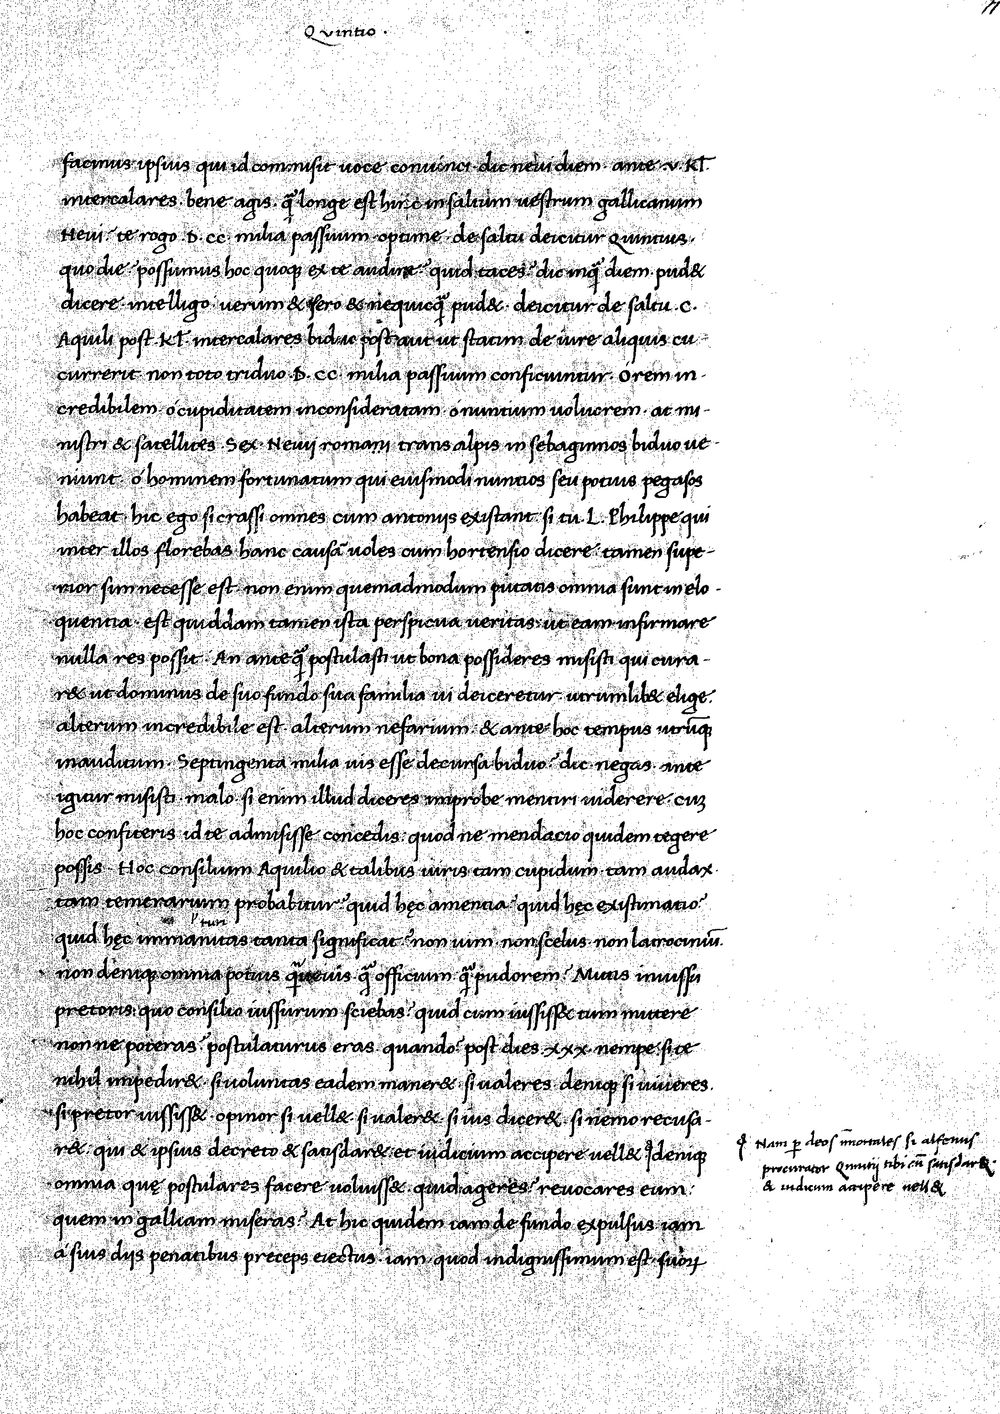 Quintio.
facinus ipsius qui id commisit uoce conuinci. dic neui diem. ante .v. Kl̄.
intercalares. bene agis. q̄ longe est hinc in saltum uestrum gallicanum
Neui te rogo D. cc. milia passuum optime de saltu deicitur Quintius.
quo die possumus hoc quoq; ex te audire quid taces? dic inq̄ diem. pud&
dicere intelligo. uerum & sero & nequicq̄ pud&. deicitur de saltu. C.
Aquili post .Kl̄. intercalares biduo post aut ut statim de iure aliquis cu
currerit non toto triduo D. cc. milia passuum conficiuntur. O rem in-
credibilem. o cupiditatem inconsideratam. o nuntium uolucrem. at mi-
nistri & satellites Sex. Neuij romam trans alpis in sebaginnos biduo ue-
niunt. o hominem fortunatum qui eiusmodi nuntios seu potius pegasos
habeat. hic ego si crassi omnes cum antonijs existant. si tu .L. Philippe qui
inter illos florebas hanc causā uoles cum hortensio dicere. tamen supe-
rior sim necesse est. non enim quemadmodum putatis omnia sunt in elo-
quentia. est quiddam tamen ista perspicua ueritas. ut eam infirmare
nulla res possit. An anteq̄ postulasti ut bona possideres misisti qui cura-
r& ut dominus de suo fundo sua familia ui deiceretur. utrumlib& elige.
alterum incredibile est. alterum nefarium. & ante hoc tempus utrūq;
inauditum. Septingenta milia uis esse decursa biduo? dic. negas. ante
igitur misisti. malo. si enim illud diceres improbe mentiri uiderere. cuȝ
hoc confiteris id te admisisse concedis. quod ne mendacio quidem tegere
possis. Hoc consilium Aquilio & talibus uiris tam cupidum tam audax.
tam temerarium probabitur? quid hęc amentia? quid hęc existimatio?
turi
quid hęc immanitas tanta significat? non uim. non scelus. non latrociniū.
non deniq; omnia potius q̄ officium q̄ pudorem? Mittis iniussu
pretoris. quo consilio iussurum sciebas? quid cum iussiss& tum mittere
nonne poteras? postulaturus eras. quando? post dies .xxx. nempe. si te
nihil impedir&. si uoluntas eadem maner&. si ualeres. deniq; si uiueres.
si pretor iussiss&. opinor si uell& si ualer& si ius dicer&. si nemo recusa-
r&. qui & ipsius decreto & satisdar& et iudicium accipere uell& deniq;
omnia quę postulares facere uoluiss&. quid ageres? reuocares eum.
quem in galliam miseras? At hic quidem iam de fundo expulsus iam
a suis dijs penatibus preceps eiectus. iam quod indignissimum est. suorꝝ
Nam ꝑ deos īmortales si alfenus
procurator Quintij tibi cū satisdar&
& iudicium accipere uell&